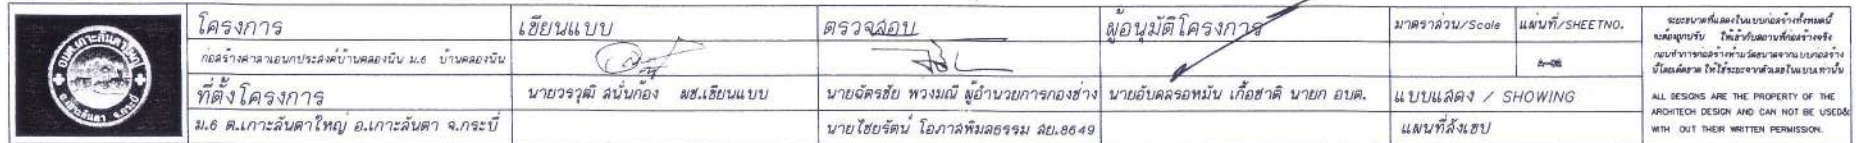 อบต.เกาะลันตาใหญ่
อ.เกาะลันตา จ.กระบี่
โครงการ
ก่อสร้างศาลาเอนกประสงค์บ้านคลองนิน ม.6 บ้านคลองนิน
ที่ตั้งโครงการ
ม.6 ต.เกาะลันตาใหญ่ อ.เกาะลันตา จ.กระบี่
เขียนแบบ
นายวรวุฒิ สนั่นก้อง ผช.เขียนแบบ
ตรวจสอบ
นายฉัตรชัย พวงมณี ผู้อำนวยการกองช่าง
นายไชยรัตน์ โอภาสพิมลธรรม สย.8649
ผู้อนุมัติโครงการ
นายอับดลรอหมัน เกื้อชาติ นายก อบต.
มาตราส่วน/Scale
แผ่นที่/SHEETNO.
แบบแสดง / SHOWING
แผนที่สังเขป
ระยะขนาดที่แสดงในแบบก่อสร้างทั้งหมดนี้
จะต้องถูกปรับ ให้เข้ากับสถานที่ก่อสร้างจริง
ก่อนทำการก่อสร้างห้ามวัดขนาดจากแบบก่อสร้าง
นี้โดยเด็ดขาด ให้ใช้ระยะจากตัวเลขในแบบเท่านั้น
ALL DESIGNS ARE THE PROPERTY OF THE
ARCHITECH DESIGN AND CAN NOT BE USED&
WITH OUT THEIR WRITTEN PERMISSION.